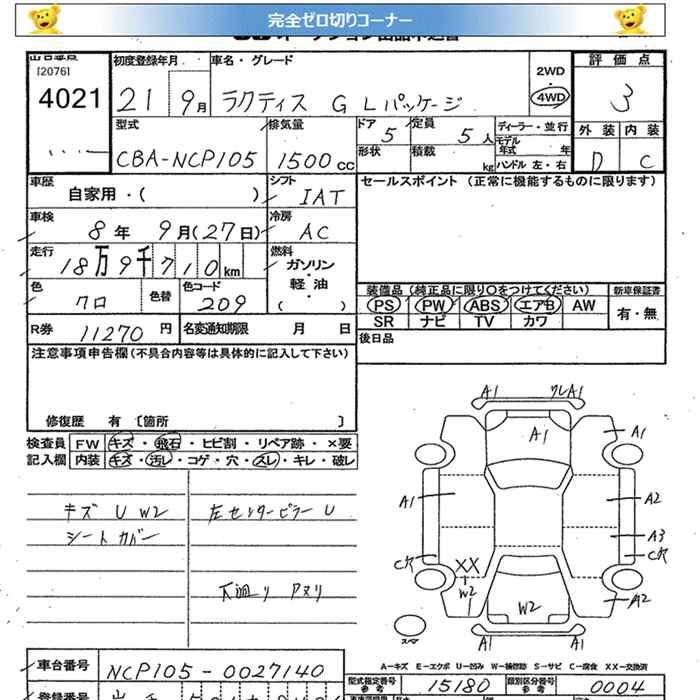 完全ゼロ切りコーナー
[2076]
4021
初度登録年月
21 9月
車名・グレード
ラクティス G Lパッケージ
2WD
・
4WD
評価点
3
外装 内装
D C
型式
CBA-NCP105
排気量
1500cc
ドア 5
定員 5人
形状
積載 kg
ディーラー・並行
モデル年式 年
ハンドル 左・右
車歴
自家用・( )
シフト
IAT
セールスポイント (正常に機能するものに限ります)
車検
8年 9月(27日)
冷房
AC
走行
18万9千710km
燃料
ガソリン
・
軽・油
( ・ )
色
クロ
色替
色コード
209
装備品(純正品に限り〇をつけてください)
PS PW ABS エアB AW
SR ナビ TV カワ
新車保証書
有・無
R券 11270円
名変通知期限 月 日
後日品
注意事項申告欄(不具合内容等は具体的に記入して下さい)
修復歴 有 〔箇所 〕
検査員 FW キズ・飛石・ヒビ割・リペア跡・×要
記入欄 内装 キズ・汚レ・コゲ・穴・スレ・キレ・破レ
キズ U W2
シートカバー
左センターピラー U
下廻り アヌリ
A1 ワレA1
A1 A1
A1 A2
A3
C穴 C穴
XX
W2 W2 A2
A1 A1
A=キズ E=エクボ U=凹み W=補修跡 S=サビ C=腐食 XX=交換済
車台番号 NCP105-0027140
型式指定番号 参考 15180
類別区分番号 参考 0004
登録番号